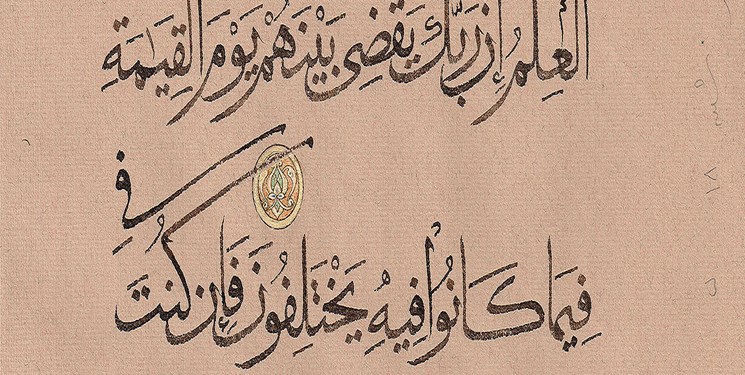 الْعِلْمُ إِنَّ رَبَّكَ يَقْضِى بَيْنَهُمْ يَوْمَ الْقِيَمَةِ
فِيمَا كَانُوا فِيهِ يَخْتَلِفُونَ فَإِن كُنتَ
فِى